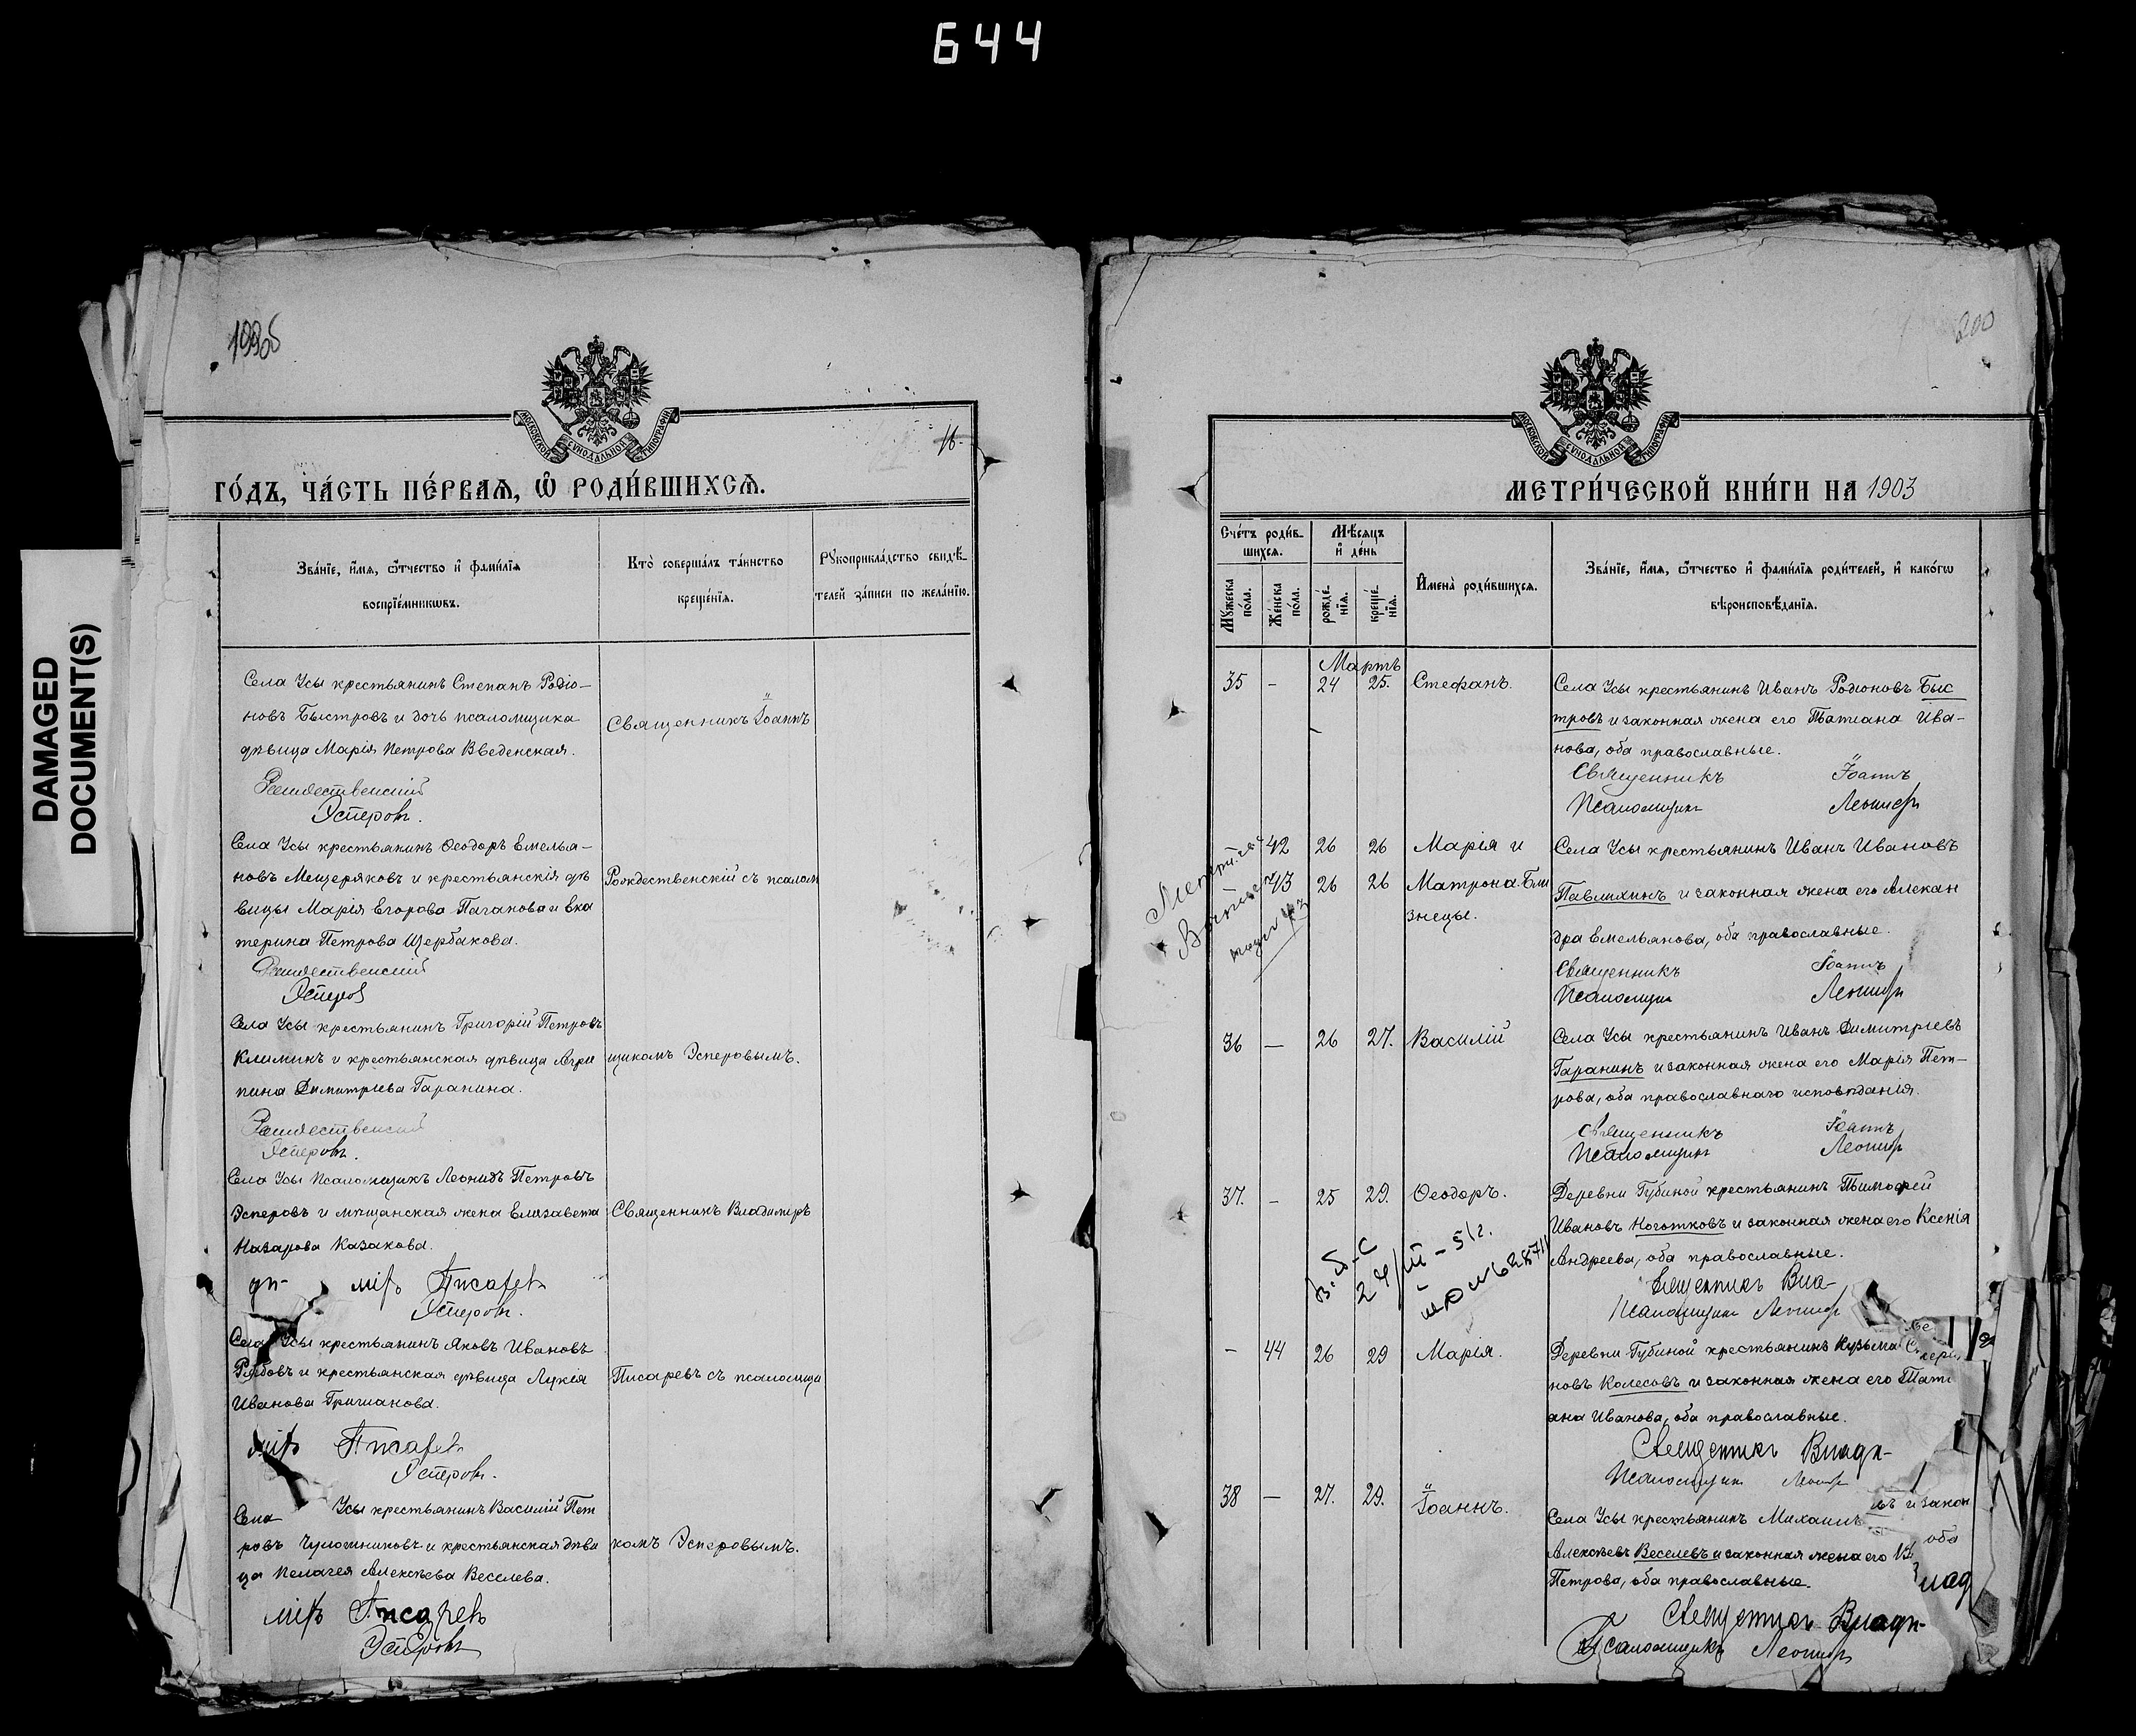 644
DAMAGED
DOCUMENT(S)
16.
МОСКОВСКОЙ СѴНОДАЛЬНОЙ ТИПОГРАФІИ
ГО́ДЪ, ЧА́СТЬ ПЕ́РВАЯ, Ѽ РОДИ́ВШИХСЯ.
Зва́нїе, и҆́мя, ѻ҆́тчество и҆ фами́лїя
воспрїе́мниковъ.
Кто̀ соверша́лъ та́инство
креще́нїя.
Рꙋкоприкла́дство свидѣ́-
телей за́писи по жела́нїю.
Села Усы крестьянинъ Степанъ Родіо-
новъ Быстровъ и дочь псаломщика
дѣвица Марія Петрова Введенская.
Священникъ Іоаннъ
Рождественскій
Эсперовъ.
Села Усы крестьянинъ Ѳеодоръ Емелья-
новъ Мещеряковъ и крестьянскія дѣ
вицы Марія Егорова Паганова и Ека
терина Петрова Щербакова.
Рождественскій съ псалом
Рождественскій
Эсперовъ
Села Усы крестьянинъ Григорій Петровъ
Климинъ и крестьянская дѣвица Агри
пина Димитріева Гаранина.
щикомъ Эсперовымъ.
Рождественскій
Эсперовъ.
Села Усы псаломщикъ Леонидъ Петровъ
Эсперовъ и мѣщанская жена Елизавета
Назарова Казакова.
Священникъ Владимиръ
Писаревъ
Эсперовъ.
Села Усы крестьянинъ Яковъ Ивановъ
Рябовъ и крестьянская дѣвица Лукія
Иванова Гришанова.
Писаревъ съ псаломщи
Писаревъ
Эсперовъ.
Села Усы крестьянинъ Василій Пет
ровъ и крестьянская дѣви
ца Пелагея Алексѣева Веселева.
комъ Эсперовымъ.
Писаревъ
Эсперовъ
200
МОСКОВСКОЙ СѴНОДАЛЬНОЙ ТИПОГРАФІИ
МЕТРИ́ЧЕСКОЙ КНИ́ГИ НА 1903
Сче́тъ роди́в-
шихся.
Мꙋжеска по́ла.
Же́нска по́ла.
Мѣ́сяцъ
и҆ де́нь
рожде́-
нїя.
креще́-
нїя.
И҆мена̀ роди́вшихся.
Зва́нїе, и҆́мя, ѻ҆́тчество и҆ фами́лїя роди́телей, и҆ како́гѡ
вѣроисповѣ́данїя.
Мартъ
35 - 24 25. Стефанъ.
Села Усы крестьянинъ Иванъ Родіоновъ Быс
тровъ и законная жена его Татіана Ива-
нова, оба православные.
Священникъ Іоаннъ
Псаломщикъ Леонидъ
42 26 26 Марія и
43 26 26 Матрона бли
знецы.
Села Усы крестьянинъ Иванъ Ивановъ
Павлихинъ и законная жена его Алексан
дра Емельянова, оба православные.
Священникъ Іоаннъ
Псаломщикъ Леонидъ
36 — 26 27. Василій
Села Усы крестьянинъ Иванъ Димитріевъ
Гаранинъ и законная жена его Марія Пет-
рова, оба православнаго исповѣданія.
Священникъ Іоаннъ
Псаломщикъ Леонидъ
37. - 25 29. Ѳеодоръ.
Деревни Губиной крестьянинъ Тимофей
Ивановъ Ноготковъ и законная жена его Ксенія
Андреева, оба православные.
24/III-51г.
Священникъ Вла-
Псаломщикъ Леонидъ
- 44 26 29 Марія.
Деревни Губиной крестьянинъ Кузьма
новъ Колесовъ и законная жена его Тати
ана Иванова, оба православные.
Священникъ Влади-
Псаломщикъ Леонидъ
38 — 27. 29. Іоаннъ.
ъ и закон
оба
Влад
Села Усы крестьянинъ Михаилъ
Алексѣевъ Веселевъ и законная жена его
Петрова, оба православные.
Священникъ Влади-
Псаломщикъ Леонидъ